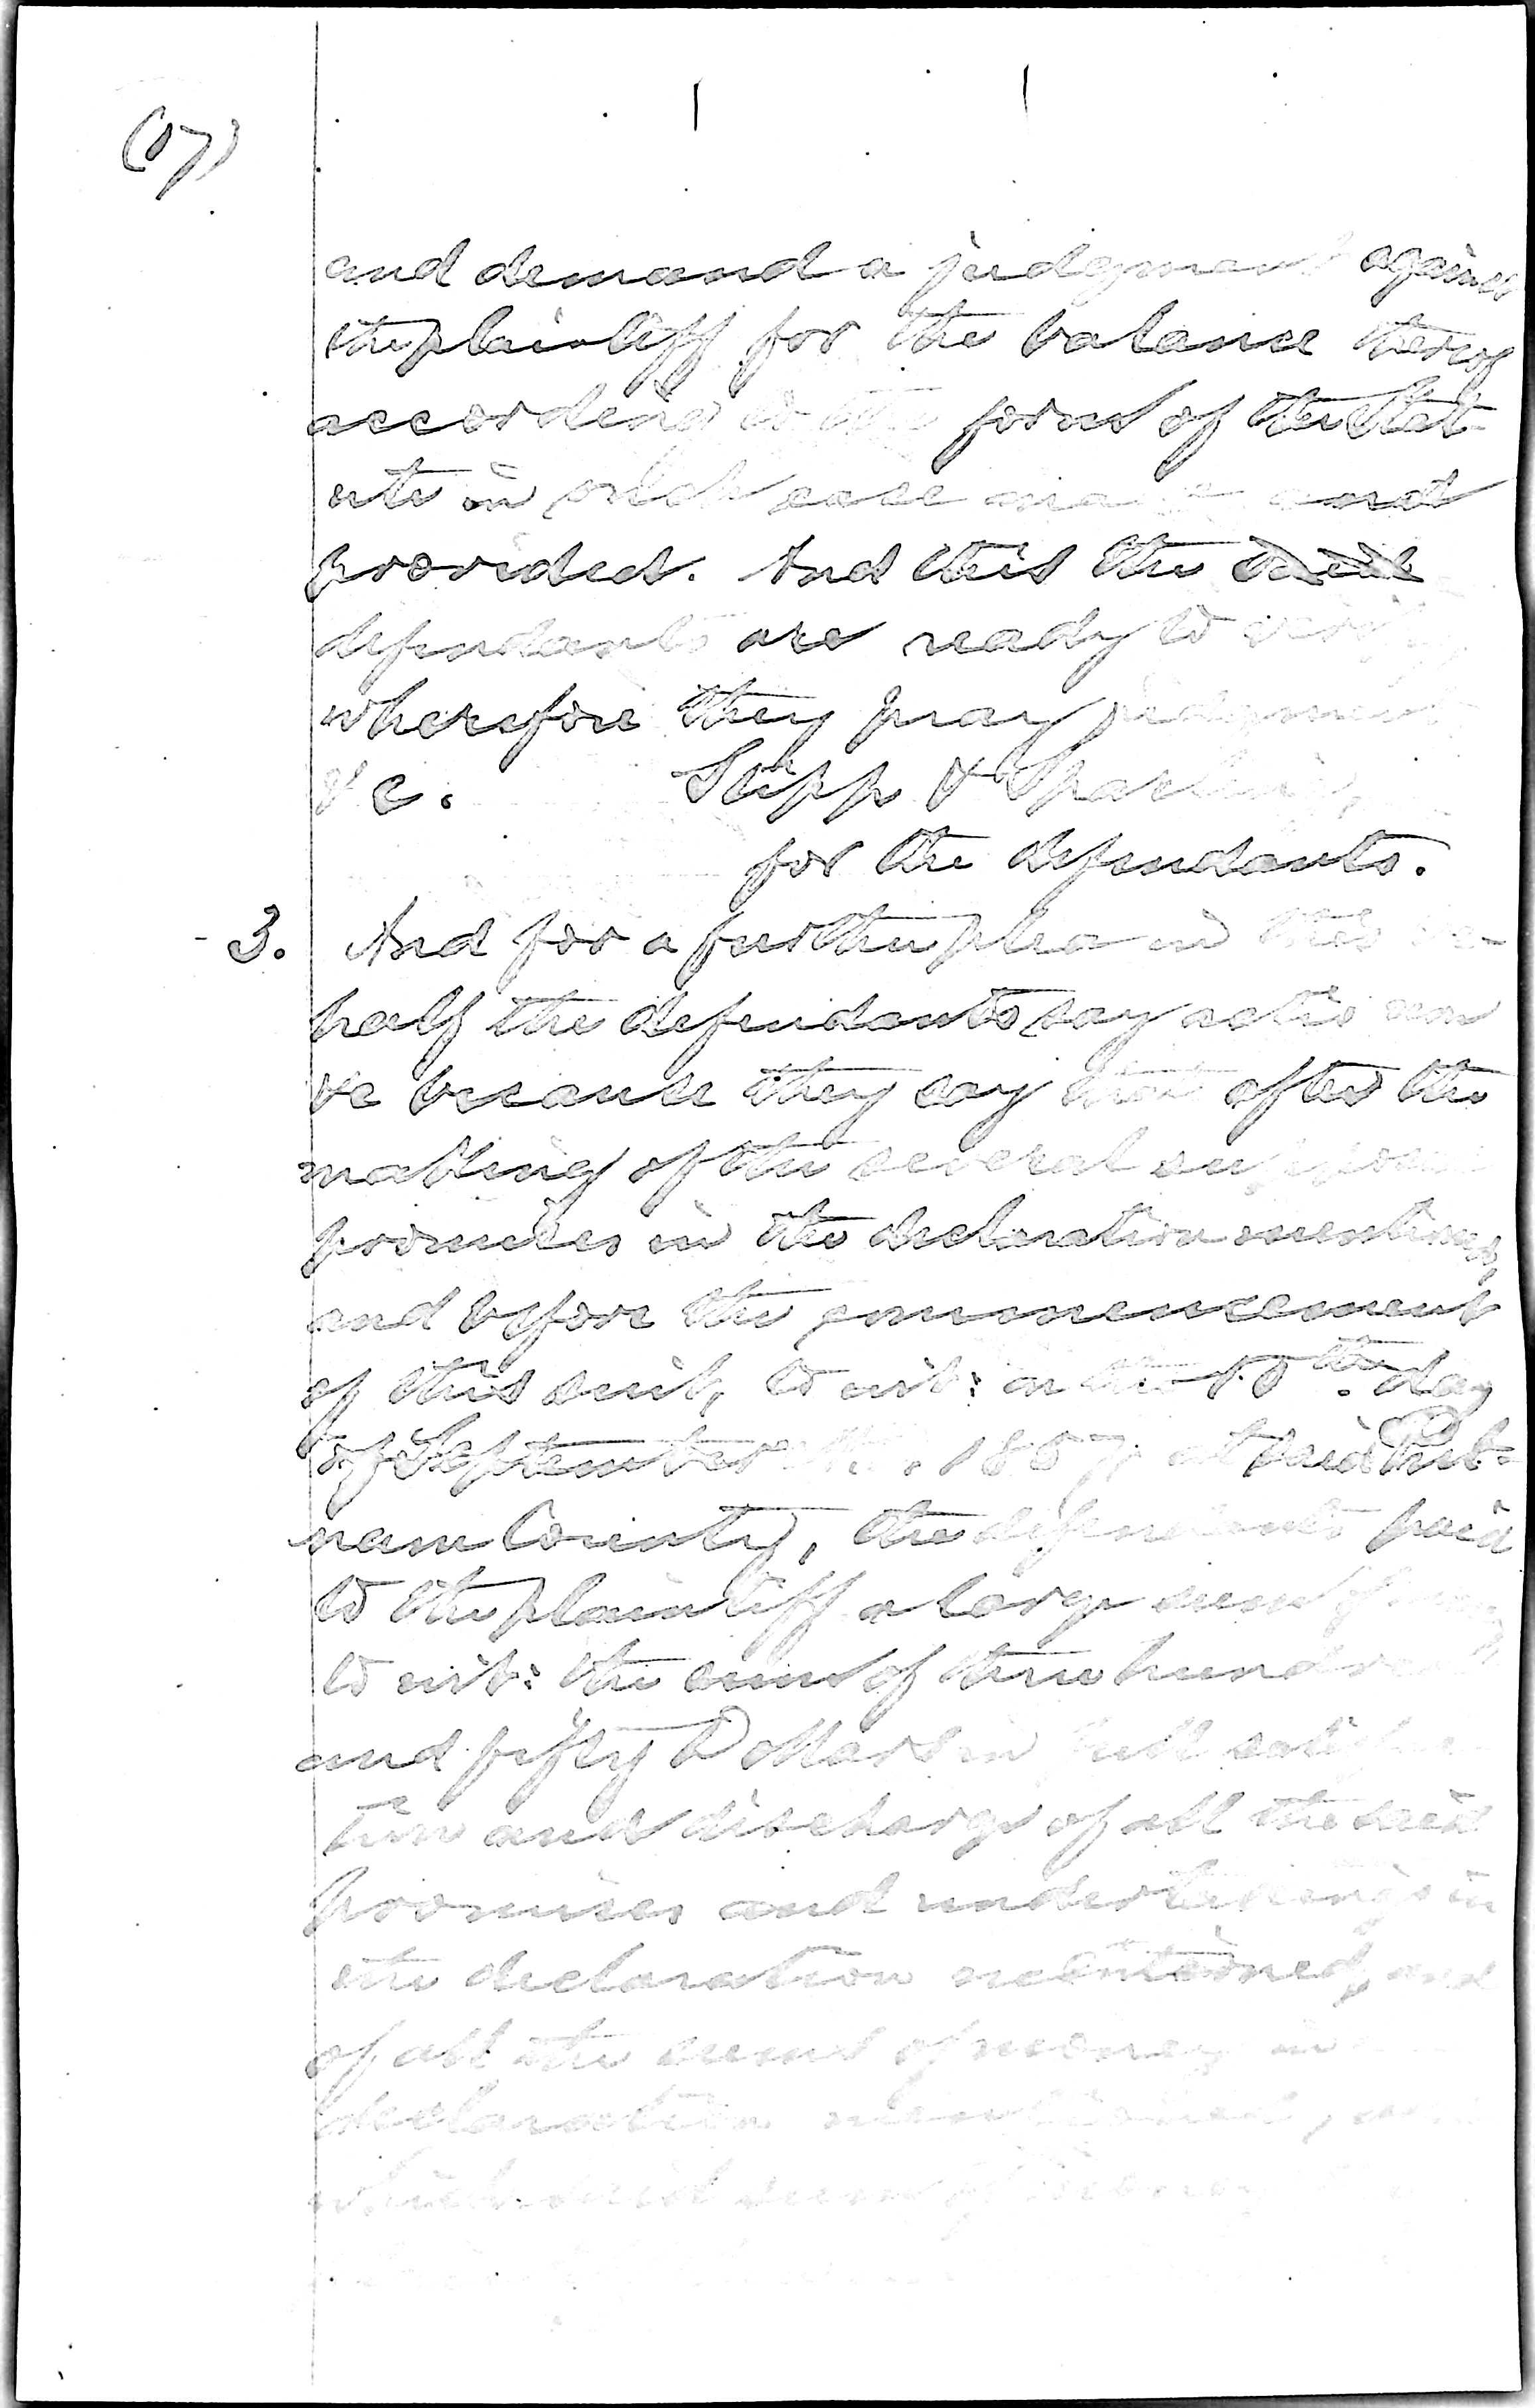 (17)
and demand a judgment against
the plaintiff for the balance thereof
according to the form of the Stat-
ute in such case made and
provided. And this the said
defendants are ready to verify
wherefore they pray judgment
&c. Stipp & Sparling,
for the defendants.
3. And for a further plea in this be-
half the defendants say actio non
&c because they say that after the
making of the several supposed
promises in the declaration mentioned,
and before the commencement
of this suit, to wit: on the 10th day
of September 1857, at said Put-
nam County, the defendants paid
to the plaintiff a large sum of money
to wit: the sum of three hundred
and fifty Dollars in full satisfac-
tion and discharge of all the said
promises and undertakings in
the declaration mentioned, and
of all the sums of money in
declaration mentioned, and
which said sum of money